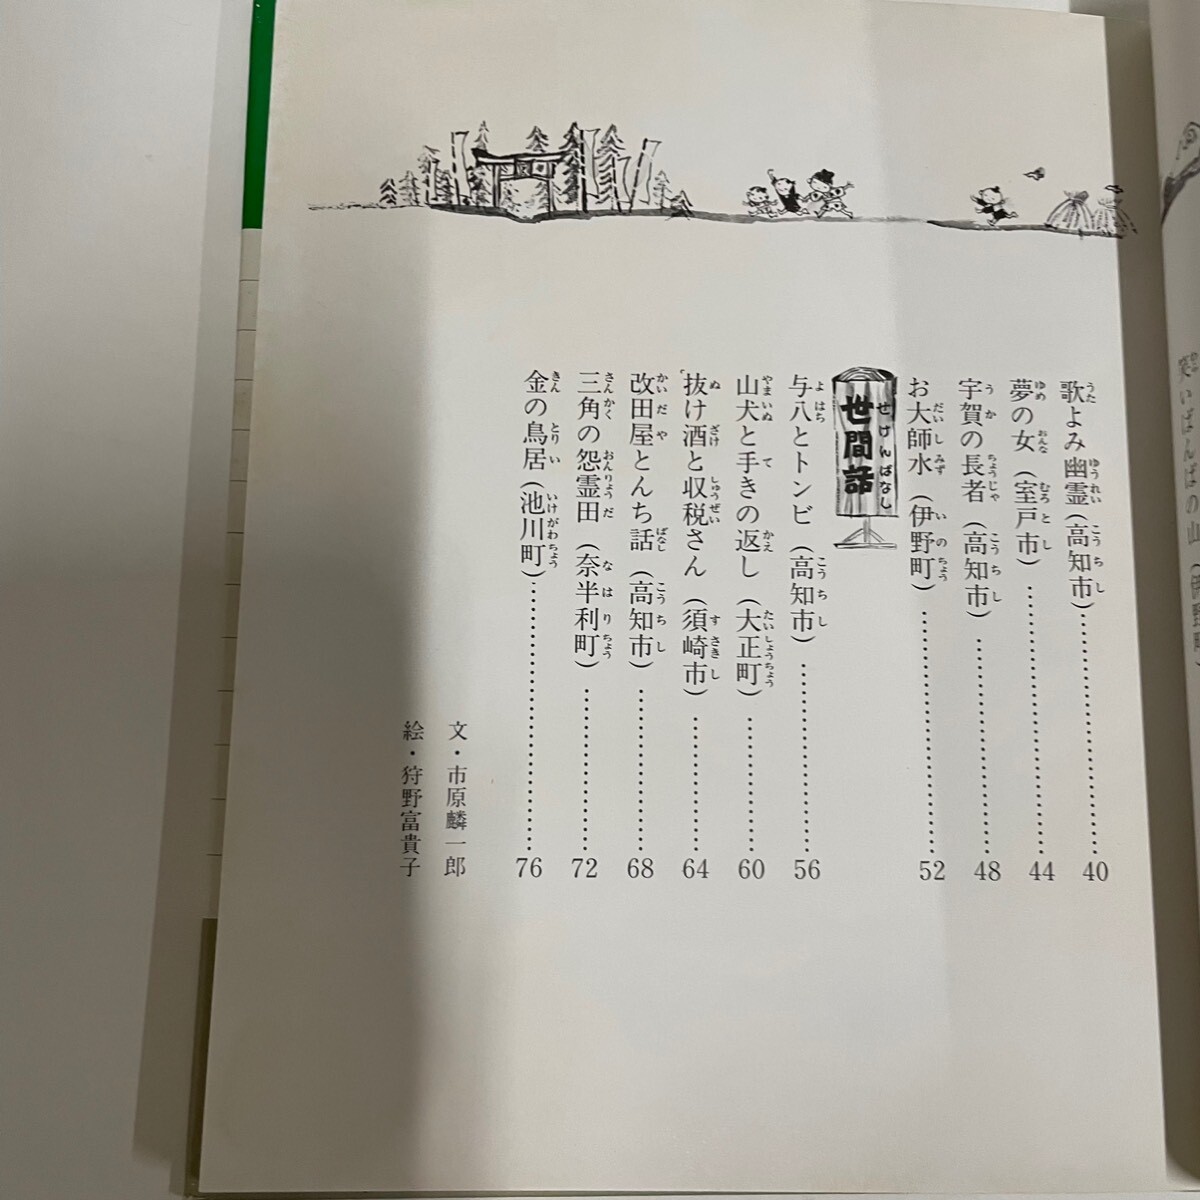 笑いばんばの山
歌よみ幽霊（高知市）……………40
夢の女（室戸市）……………44
宇賀の長者（高知市）……………48
お大師水（伊野町）……………52
世間話
せけんばなし
与八とトンビ（高知市）……………56
山犬と手きの返し（大正町）……………60
抜け酒と収税さん（須崎市）……………64
改田屋とんち話（高知市）……………68
三角の怨霊田（奈半利町）……………72
金の鳥居（池川町）……………76
文・市原麟一郎
絵・狩野富貴子